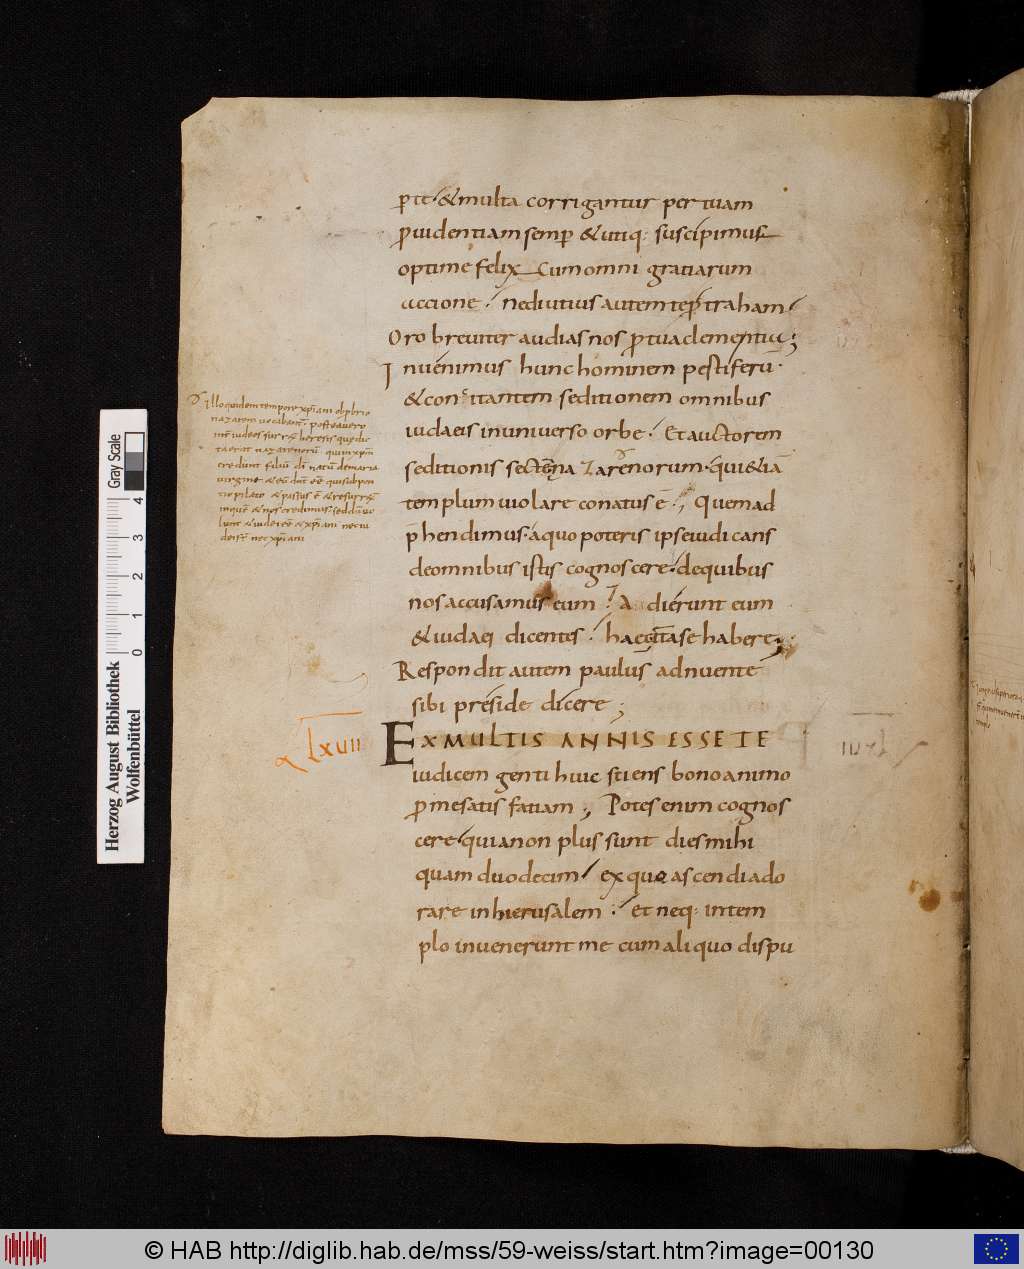 p te · & multa corrigantur per tuam
p̄uidentiam semp & utiq: suscipimus
optime felix Cum omni gratiarum
accione ·/ ne diutius autem te p̄traham /
Oro breuiter audias nos p̄ tua clementia ;
Inuenimus hunc hominem pestiferū ·
& concitantem seditionem omnibus
iudaeis in uniuerso orbe ·/ Et auctorem
seditionis sectē nazarenorum · qui & iā
templum uiolare conatus ē · ; Quem ad
p̄hendimus · a quo poteris ipse iudicans
de omnibus istis cognoscere · de quibus
nos accusamus eum Adierunt eum
& iudaei dicentes ·/ haec ita se habere ;
Respondit autem paulus adnuente
sibi preside dicere ;
lxuii
EX MULTIS ANNIS ESSE TE
iudicem genti huic sciens bono animo
p̄ me satis faciam ; Potes enim cognos
cere quia non plus sunt dies mihi
quam duodecim / ex quo ascendi ado
rare in hierusalem ·/ et neq: in tem
plo inuenerunt me cum aliquo dispu
Illo quidem tempore xp̄iani obprbrio
nazareni uocabant̄ · postea uero
credunt filiū dī natū de maria
uirgine & eū
tio pilato & passus ē & resurrex
inquē & nos credimus · sed dū uo
lunt & iudei eē & xp̄iani nec iu
dei s̄t nec xp̄iani
Herzog August Bibliothek
Wolfenbüttel
0 1 2 3 4
Gray Scale
© HAB http://diglib.hab.de/mss/59-weiss/start.htm?image=00130